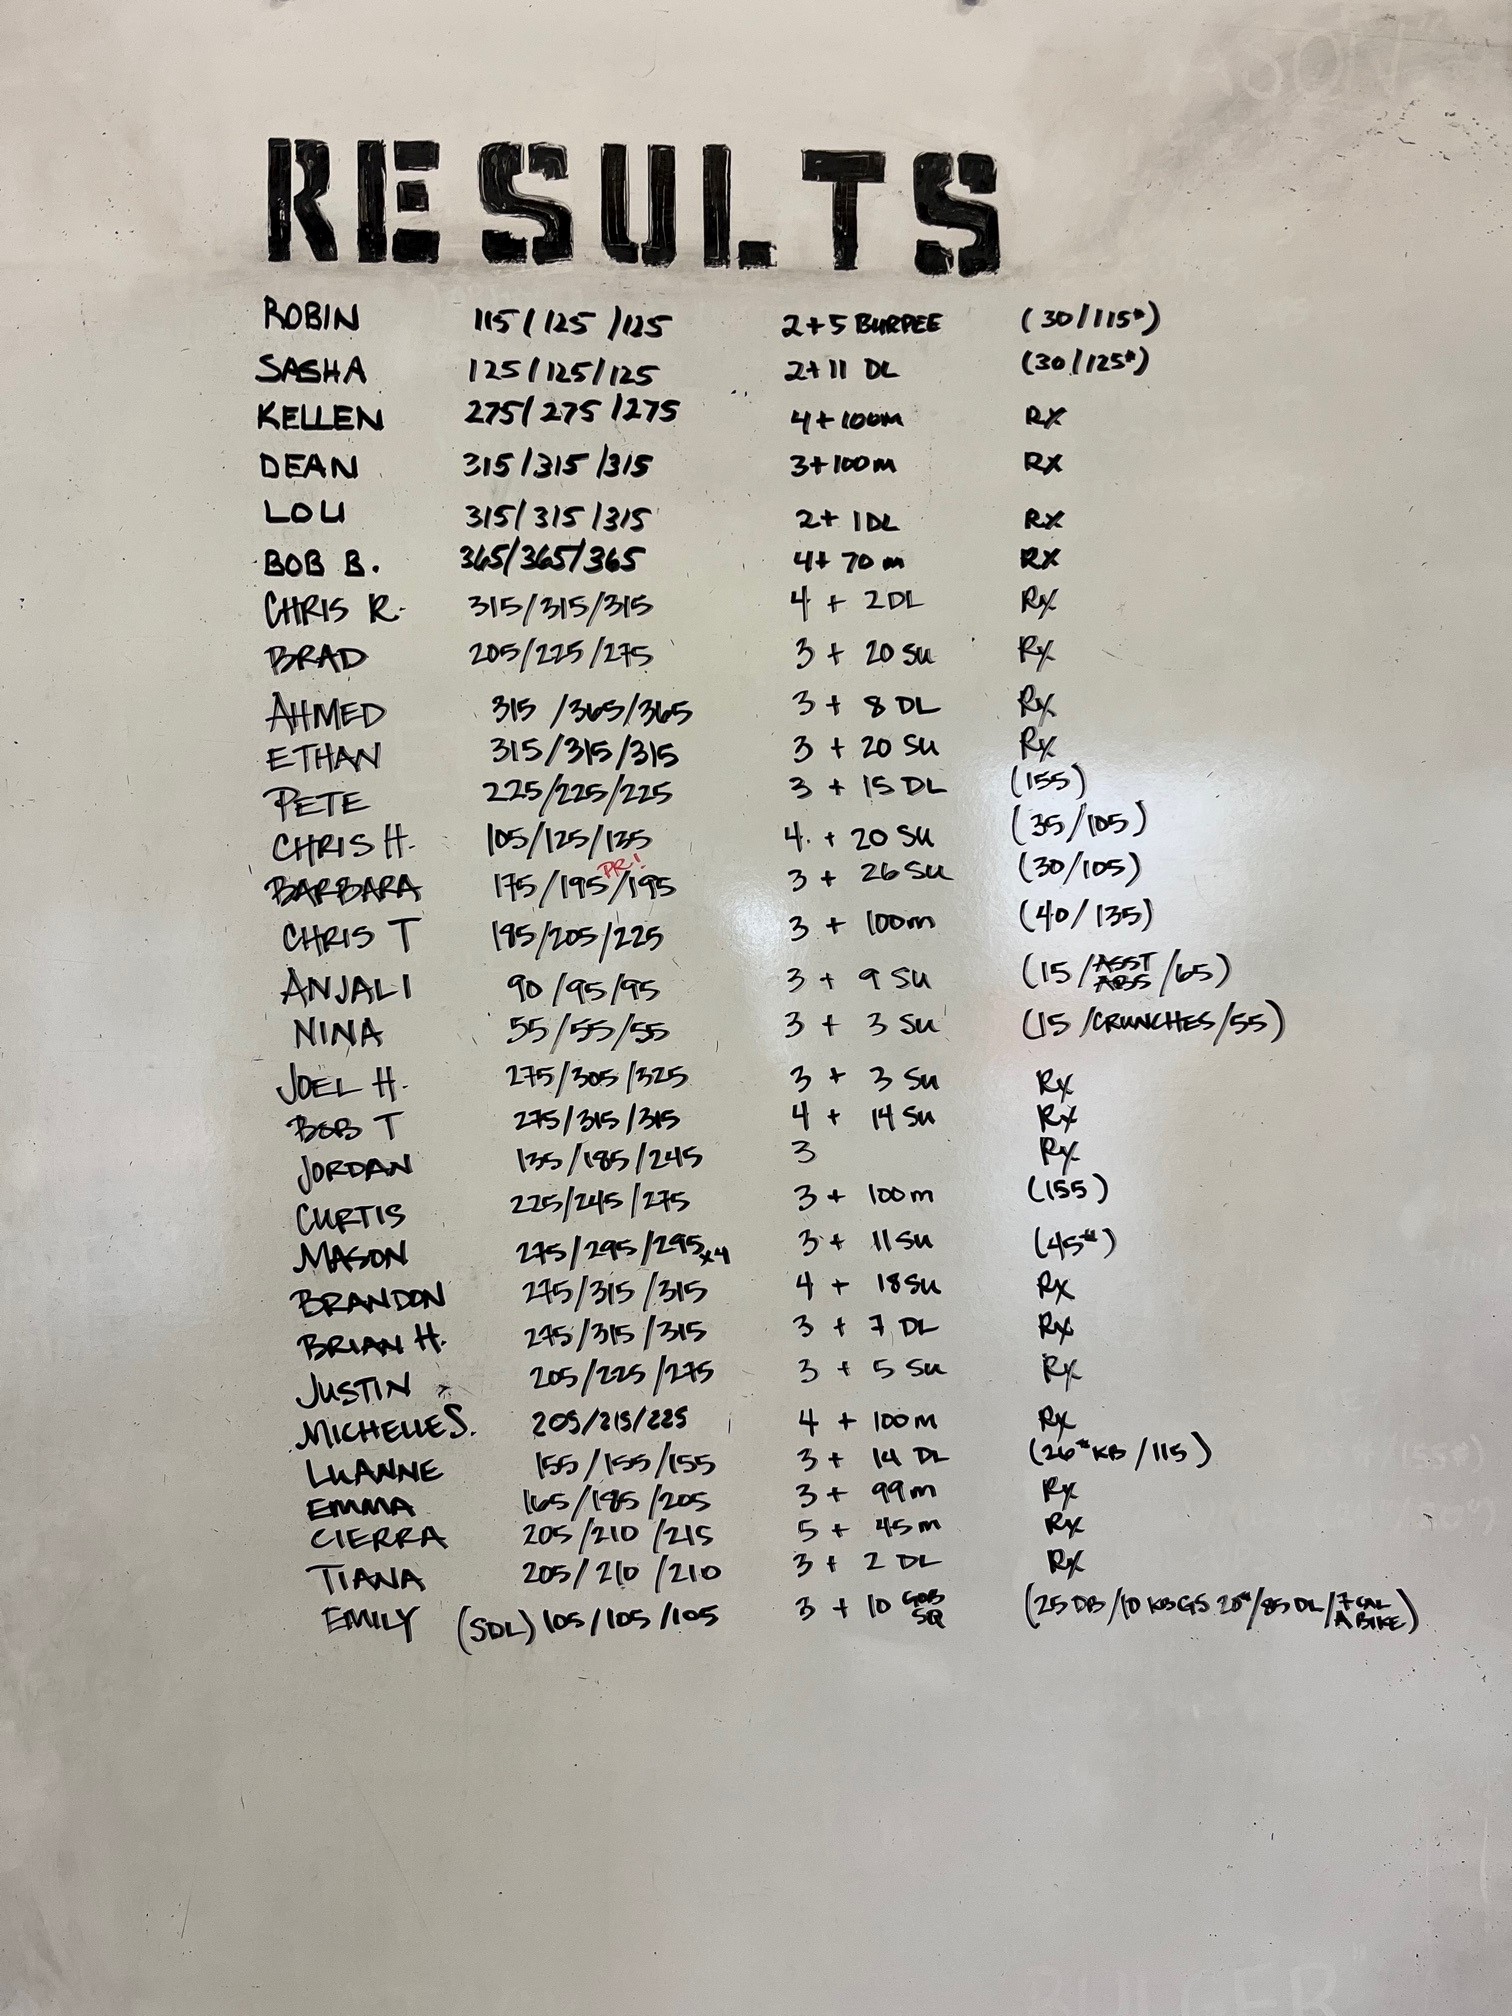 RESULTS
ROBIN 115/125/125 2+5 BURPEE (30/115#)
SASHA 125/125/125 2+11 DL (30/125#)
KELLEN 275/275/275 4+100m RX
DEAN 315/315/315 3+100m RX
LOU 315/315/315 2+1DL RX
BOB B. 365/365/365 4+70m RX
CHRIS R. 315/315/315 4 + 2DL Rx
BRAD 205/225/275 3 + 20 SU Rx
AHMED 315/365/365 3 + 8 DL Rx
ETHAN 315/315/315 3 + 20 SU Rx
PETE 225/225/225 3 + 15 DL (155)
CHRIS H. 105/125/135 4. + 20 SU (35/105)
PR!
BARBARA 175/195/195 3 + 26 SU (30/105)
CHRIS T 185/205/225 3 + 100m (40/135)
ANJALI 90/95/95 3 + 9 SU (15/ASST ABS/65)
NINA 55/55/55 3 + 3 SU (15/CRUNCHES/55)
JOEL H. 275/305/325 3 + 3 SU Rx
BOB T 275/315/315 4 + 14 SU Rx
JORDAN 135/185/245 3 Rx
CURTIS 225/245/275 3 + 100m (155)
MASON 275/295/295x4 3 + 11 SU (45#)
BRANDON 275/315/315 4 + 18SU Rx
BRIAN H. 275/315/315 3 + 7 DL Rx
JUSTIN 205/225/275 3 + 5 SU Rx
MICHELLE S. 205/215/225 4 + 100m Rx
LUANNE 155/155/155 3 + 14 DL (26#KB/115)
EMMA 165/185/205 3 + 99m Rx
CIERRA 205/210/215 5 + 45m Rx
TIANA 205/210/210 3 + 2 DL Rx
EMILY (SDL) 105/105/105 3 + 10 GOB SQ (25 DB/10 KBGS 20#/85 DL/7 CAL A BIKE)
JASON